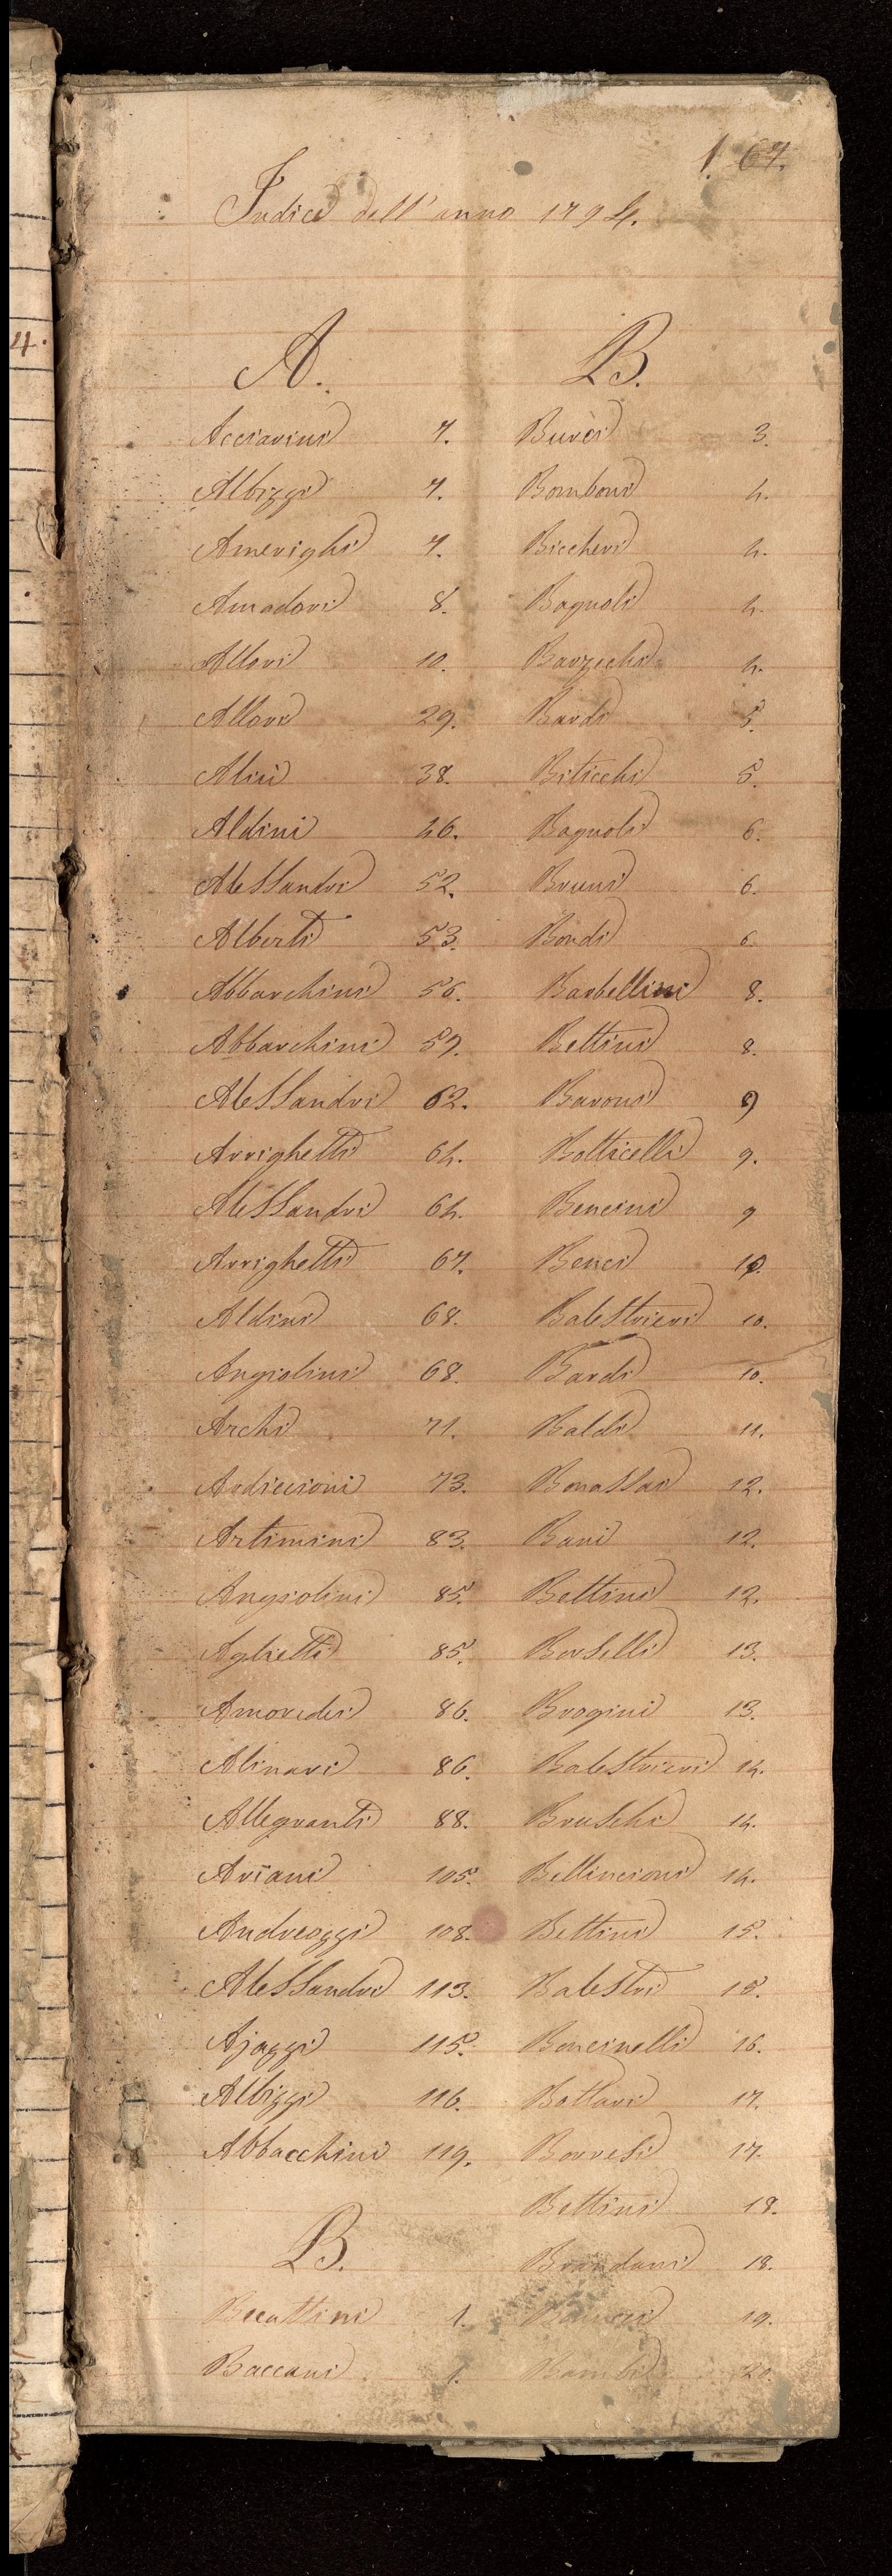 1. 67.
Indice dell'anno 1794.
A.
Acciarini 7.
Albizzi 7.
Amerighi 7.
Amadori 8.
Allori 10.
Allori 29.
Alisi 38.
Aldini 46.
Alessandri 52.
Alberti 53.
Abbarchini 56.
Abbarchini 59.
Alessandri 62.
Arrighetti 64.
Alessandri 64.
Arrighetti 67.
Aldini 68.
Angiolini 68.
Archi 71.
Ardiccioni 73.
Artimini 83.
Angiolini 85.
Aglietti 85.
Amoredei 86.
Alinari 86.
Allegranti 88.
Ariani 105.
Andreozzi 108.
Alessandri 113.
Ajazzi 115.
Albizzi 116.
Abbacchini 119.
B.
Becattini 1.
Baccani 1.
B.
Burèi 3.
Bomboni 4.
Biccheri 4.
Bagnoli 4.
Barzechi 4.
Bardi 5.
Biticchi 5.
Bagnoli 6.
Bruni 6.
Bondi 6.
Barbellini 8.
Bettini 8.
Baroni 9
Botticelli 9.
Bencini 9
Benci 10.
Balestrieri 10.
Bardi 10.
Baldi 11.
Bonassai 12.
Bani 12.
Bettini 12.
Borselli 13.
Brogini 13.
Balestrieri 14.
Bruschi 14.
Bellincioni 14.
Bettini 15.
Balestri 15.
Boncinelli 16.
Bottari 17.
Borresi 17.
Bettini 18.
Brandani 18.
19.
Bambi 20.
4.